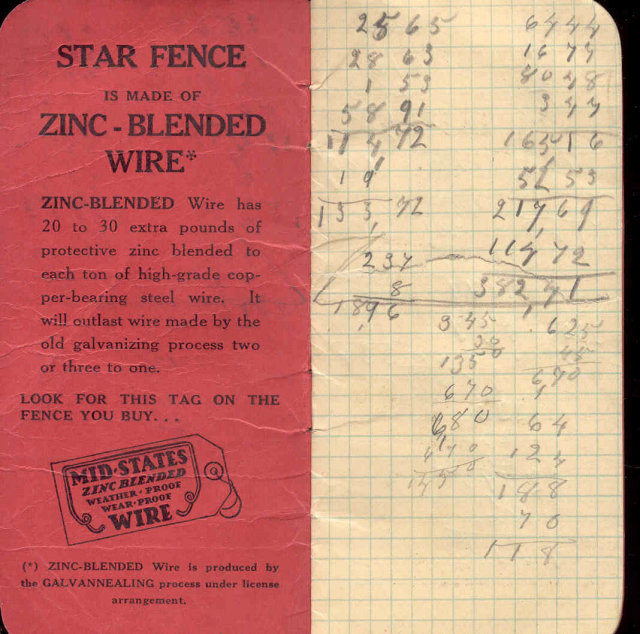 STAR FENCE
IS MADE OF
ZINC - BLENDED
WIRE*
ZINC-BLENDED Wire has
20 to 30 extra pounds of
protective zinc blended to
each ton of high-grade cop-
per-bearing steel wire. It
will outlast wire made by the
old galvanizing process two
or three to one.
LOOK FOR THIS TAG ON THE
FENCE YOU BUY. . .
MID-STATES
ZINC BLENDED
WEATHER-PROOF
WEAR-PROOF
WIRE
(*) ZINC-BLENDED Wire is produced by
the GALVANNEALING process under license
arrangement.
25 65
28 63
1 53
58 91
114 72
19
133,72
237
8
1896
6444
1677
8048
344
16516
52 53
21769
11472
38241
345
20
1350
670
680
625
45
670
64
124
188
70
118